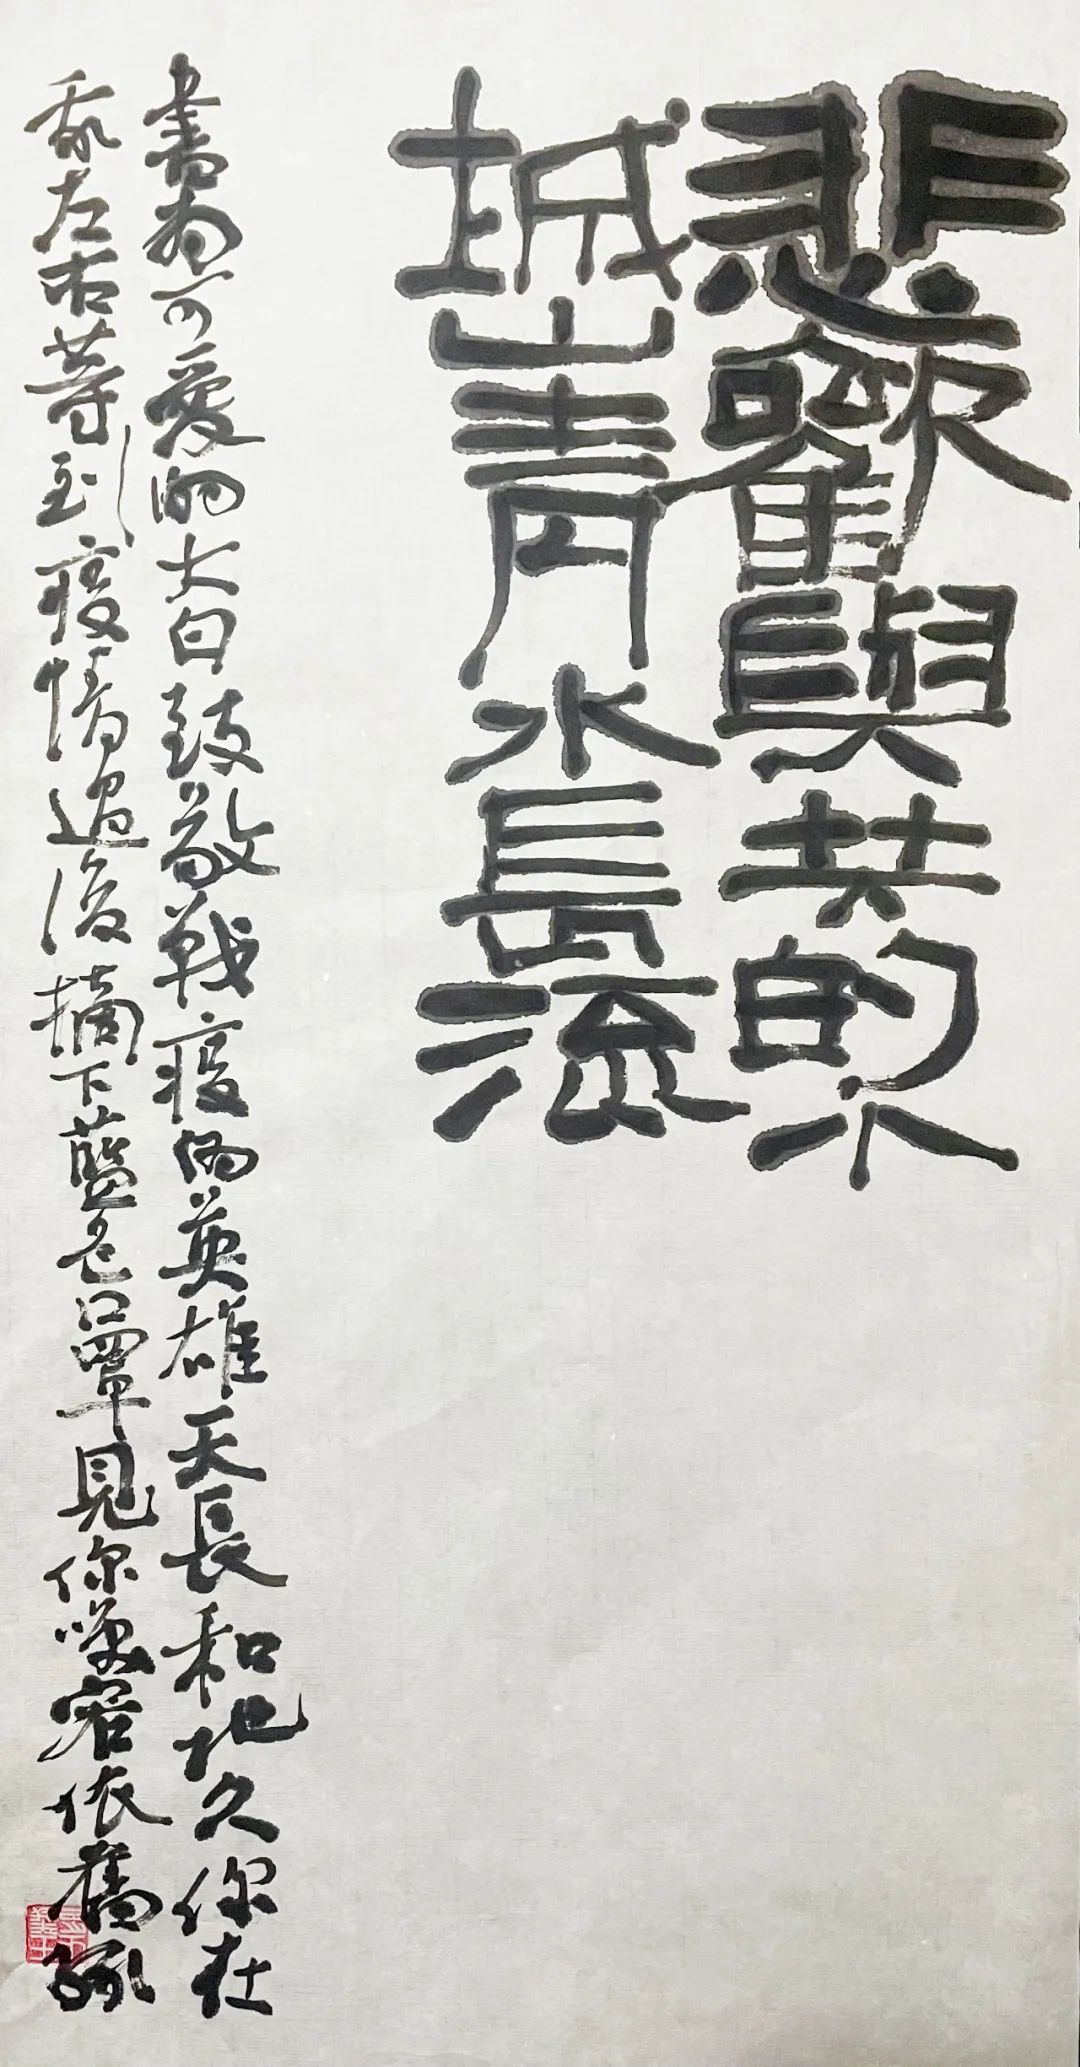 悲歡與共的小
城山青水長流
書為可愛的大白致敬戰疫的英雄天長和地久你在
我左右等到疫情過後摘下藍色口罩見你笑容依舊